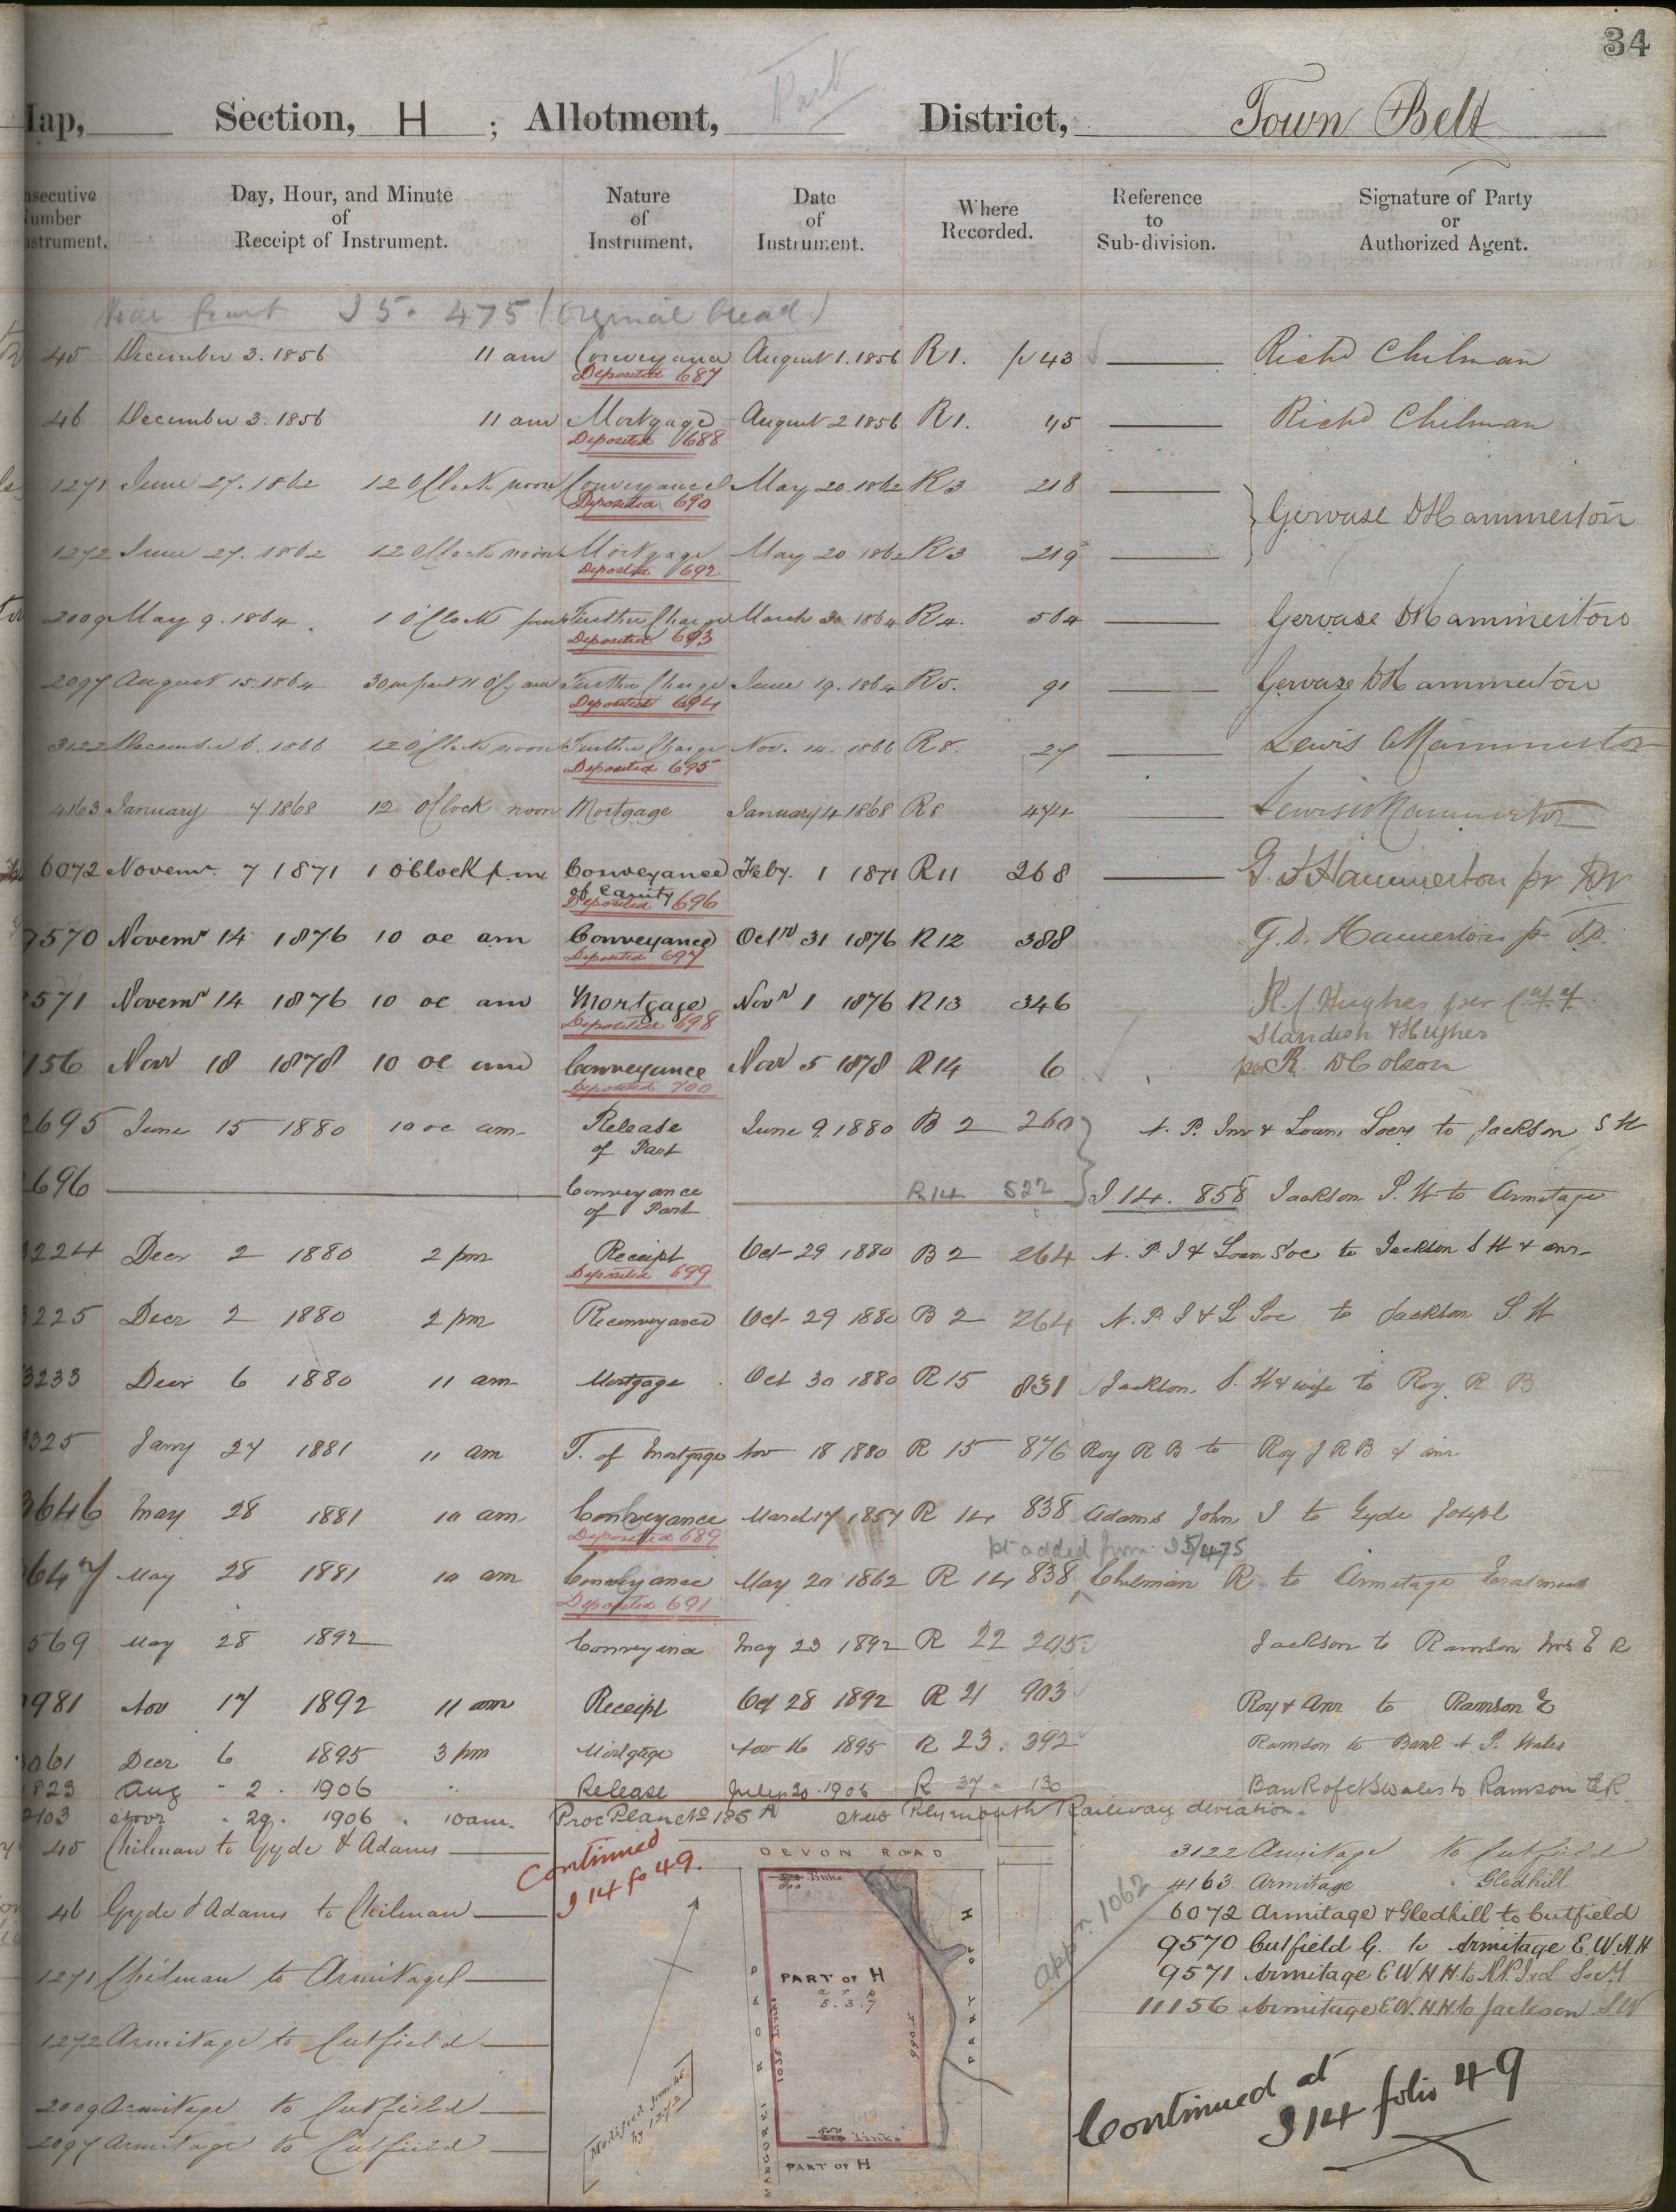 34
Map, Section, H ; Allotment, Part District, Town Belt
Consecutive Number Instrument. Day, Hour, and Minute of Receipt of Instrument. Nature of Instrument. Date of Instrument. Where Recorded. Reference to Sub-division. Signature of Party or Authorized Agent.
I 5. 475 (Original head)
45 December 3. 1856 11 am Conveyance August 1. 1856 R 1. p 43 Richd Chilman
Deposited 687
46 December 3. 1856 11 am Mortgage August 2 1856 R 1. 45 Richd Chilman
Deposited 688
1271 June 27. 1862 12 O'Clock noon Conveyance May 20. 1862 R 3 218
Deposited 690
Gervase D Hammerton
1272 June 27. 1862 12 O'Clock noon Mortgage May 20 1862 R 3 219
Deposited 692
2009 May 9. 1864 1 O'Clock pm Further Charge March 30 1864 R 4. 504 Gervase D Hammerton
Deposited 693
2097 August 15. 1864 30 m past 11 O'C am Further Charge June 19. 1864 R 5. 91 Gervase D Hammerton
Deposited 694
3122 December 6. 1866 12 O'Clock noon Further Charge Nov. 14. 1866 R 8. 27 Lewis Hammerton
Deposited 695
4163 January 7 1868 12 O'Clock noon Mortgage January 4 1868 R 8 474 Lewis Hammerton
6072 Novemr. 7 1871 1 O'Clock p.m Conveyance Feby. 1 1871 R 11 268 G. D Hammerton pr
of Equity
Deposited 696
9570 Novemr 14 1876 10 oc am Conveyance Octr 31 1876 R 12 388 G. D. Hamerton p
Deposited 697
9571 Novemr 14 1876 10 oc am Mortgage Novr 1 1876 R 13 346 Hughes per
Deposited 698
Standish & Hughes
156 Nov 18 1878 10 oc am Conveyance Nov 5 1878 R 14 6 per R. D Colson
Deposited 700
2695 June 15 1880 10 oc am Release June 9. 1880 B 2 260 N. P. Inv & Loan Socy to Jackson S W
of Part
2696 Conveyance R 14 522 I 14. 858 Jackson S. W to Armitage
of Part
3224 Decr 2 1880 2 pm Receipt Oct 29 1880 B 2 264 N. P. I & Loan Soc to Jackson S W & anr
Deposited 699
3225 Decr 2 1880 2 pm Reconveyance Oct 29 1880 B 2 264 N. P. I & L Soc to Jackson S. W
3233 Decr 6 1880 11 am Mortgage Oct 30 1880 R 15 831 Jackson S. W & wife to Roy R B
3325 Jany 24 1881 11 am T. of Mortgage Nov 18 1880 R 15 876 Roy R B to Roy J R B & anr
3646 May 28 1881 10 am Conveyance March 17 1857 R 14 838 Adams John I to Gyde Joseph
Deposited 689
pt added from I 5/475
3647 May 28 1881 10 am Conveyance May 20 1862 R 14 838 Chilman R to Armitage Erasmus
Deposited 691
569 May 28 1892 Conveyance May 23 1892 R 22 205 Jackson to Ramson Mrs E R
981 Nov 17 1892 11 am Receipt Oct 28 1892 R 21 903 Roy & Anr to Ramson E
061 Decr 6 1895 3 pm Mortgage Nov 16 1895 R 23. 392 Ramson to Bank N. S. Wales
823 Aug 2. 1906 Release July 20. 1906 R 37 130 Bank of N S Wales to Ramson E R
2103 Novr 29. 1906 10 am. Proc Plan No 185 A New Plymouth Railway deviation.
45 Chilman to Gyde & Adams
46 Gyde & Adams to Chilman
1271 Chilman to Armitage
1272 Armitage to Cutfield
2009 Armitage to Cutfield
2097 Armitage to Cutfield
Continued
I 14 fo 49.
DEVON ROAD
Links
PART OF H
a r p
5. 3. 7
1035 Links
990.5
MANGOREI ROAD
Links
PART OF H
by 1272
appn 1062
3122 Armitage to Cutfield
4163. Armitage " Gledhill
6072 Armitage & Gledhill to Cutfield
9570 Cutfield G. to Armitage E. W. H. H
9571 Armitage E W H H to N.P. I & L Socy
11156 Armitage E. W. H. H. to Jackson S W
Continued at
I 14 folio 49